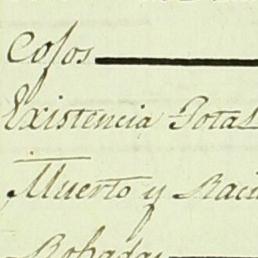 Cojos
Existencia Total
Muerto y Raci
Robadas